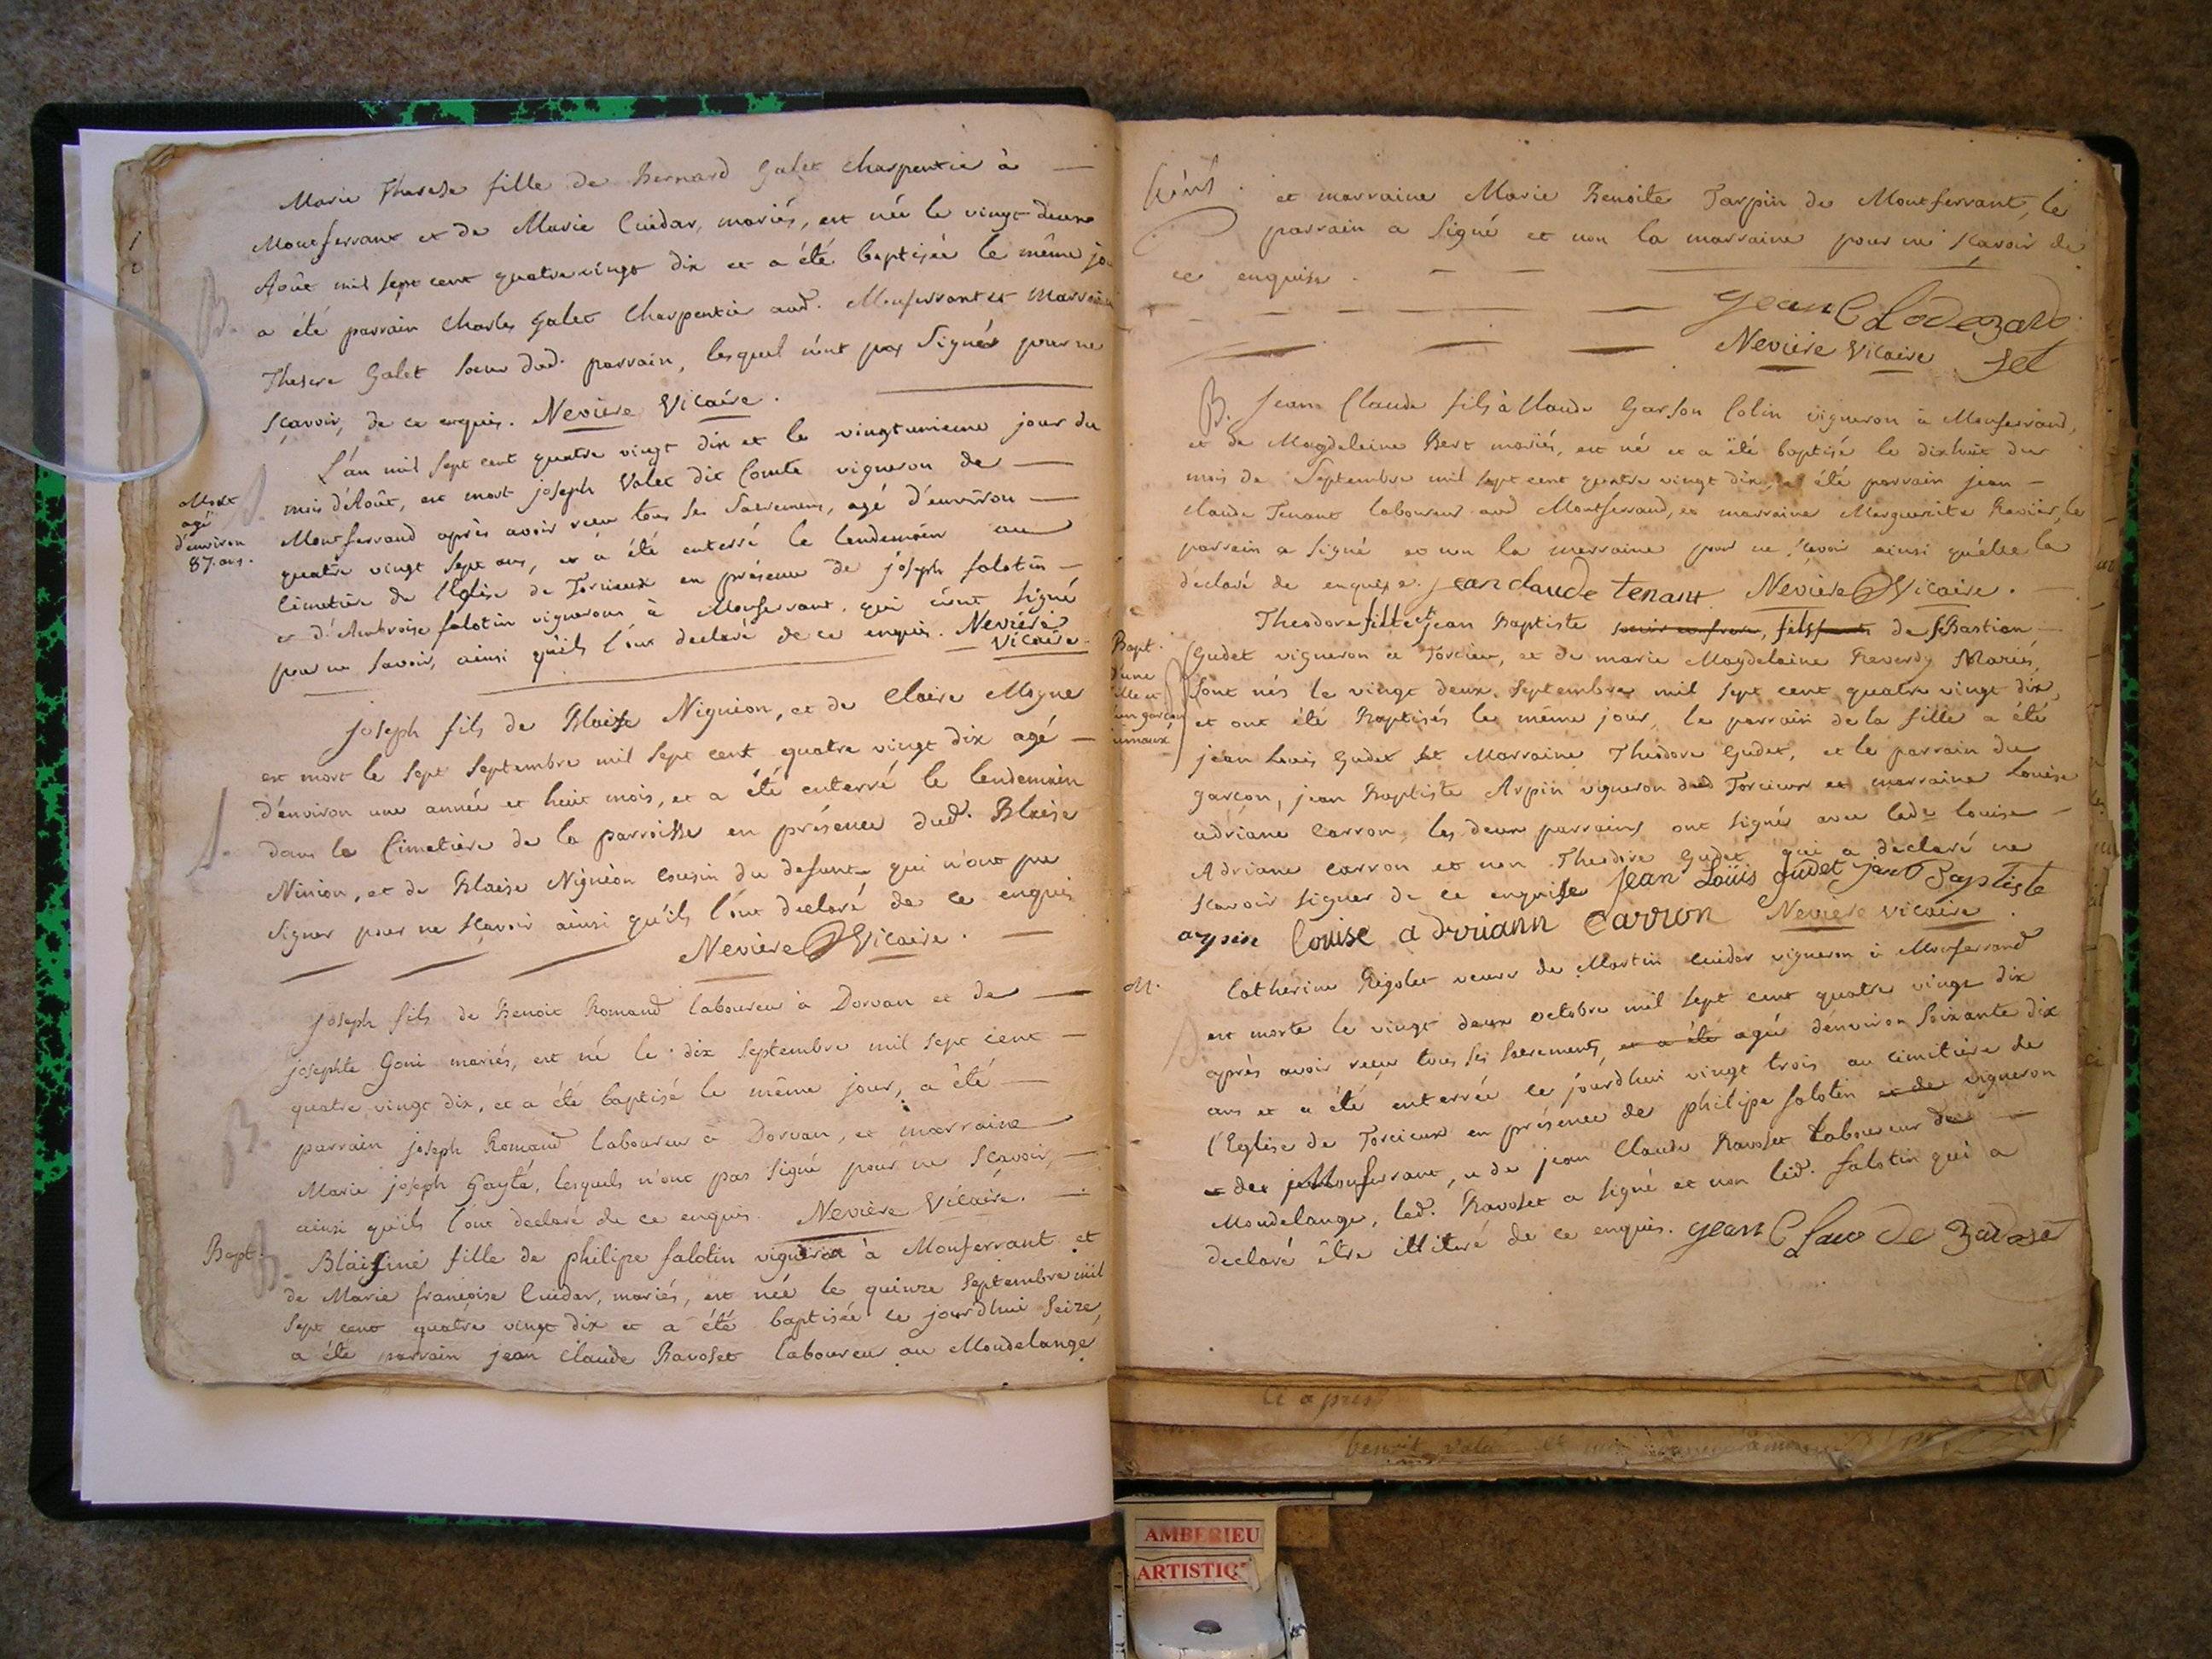 B. Marie Therese fille de Bernard Galet Charpentié à
Montferrant et de Marie Cuidar, mariés, est née le vingt deux
Août mil sept cent quatre vingt dix et a été baptisée le même jo
a été parrain Charles Galet Charpentié aud. Monferrant et marrain
Therese Galet soeur dud. parrain, lesquel n'ont pas signés pour ne
sçavoir, de ce enquis. Nevière Vicaire.
Mort
agé
d'environ
87. ans.
L'an mil sept cent quatre vingt dix et le vingtunieme jour du
mois d'Août, est mort joseph Valet dit Comte vigneron de
Montferrand après avoir reçu tous ses Sacremens, agé d'environ
quatre vingt sept ans, et a été enterré le lendemain au
Cimetière de l'Eglise de Torcieux en présence de jóseph falotin
et d'Ambroise falotin vignerons à Monferrant. qui n'ont signé
pour ne savoir, ainsi qu'ils l'ont declaré de ce enquis. Nevière
Vicaire.
joseph fils de Blaise Nignion, et de Claire Mogne
est mort le sept septembre mil sept cent quatre vingt dix agé
d'environ une année et huit mois, et a été enterré le lendemain
dans le Cimetière de la parroisse en présence dud. Blaise
Ninion, et de Blaise Nignion cousin du defunt qui n'ont pu
signer pour ne sçavoir ainsi qu'ils l'ont declaré de ce enquis
Nevière Vicaire.
B. joseph fils de Benoit Romand laboureur à Dorvan et de
josephte Goni mariés, est né le dix septembre mil sept cent
quatre vingt dix, et a été baptisé le même jour, a été
parrain joseph Romand laboureur à Dorvan, et marraine
Marie joseph Gayté, lesquels n'ont pas signé pour ne sçavoir,
ainsi qu'ils l'ont declaré de ce enquis. Nevière Vicaire.
Bapt.
B. Blaisine fille de philipe falotin vigneron à Monferrant et
de Marie françoise Cuidar, mariés, est née le quinze septembre mil
sept cent quatre vingt dix et a été baptisée ce jourdhui seize,
a été parrain jean Claude Ravoset laboureur au Mondelange
et marraine Marie Benoite Tarpin de Montferrant, le
parrain a signé et non la marraine pour ne sçavoir de
ce enquise.
Jean C
Nevière Vicaire
B. Jean Claude fils à Claude Garson Colin vigneron à Monferrand,
et de Magdeleine Bert mariés, est né et a été baptisé le dixhuit du
mois de Septembre mil sept cent quatre vingt dix, a été parrain jean
claude Tenant laboureur aud Montferrand, et marraine Marguerite Ravier, le
parrain a signé et non la marraine pour ne sçavoir ainsi quélle la
déclaré de enquise. jean claude tenant Nevière Vicaire.
Bapt.
d'une
fille et
un garçon
jumaux
Theodore fille et jean Baptiste fils de sBastian
Gudet vigneron a Torcieu, et de marie Magdelaine Reverdy Mariés,
sont nés le vingt deux septembre mil sept cent quatre vingt dix,
et ont été Baptisés le même jour, le parrain de la fille a été
jean Louis Gudet et Marraine Theodore Gudet, et le parrain du
garcon, jean Baptiste Arpin vigneron dud Torcieux et marraine Louise
adriane Carron, les deux parrains ont signé avec lade louise
Adriane carron et non Theodore Gudet qui a declaré ne
scavoir signer de ce enquise Jean Loüis gudet jan Baptiste
arpin Louise adrriann Carron Nevière Vicaire.
M.
Catherine Rigolet veuve de Martin Cuidar vigneron à Monferrand
est morte le vingt deux octobre mil sept cent quatre vingt dix
après avoir reçu tous ses sacrements, et a été agée d'environ soixante dix
ans et a été enterrée ce jourdhui vingt trois au cimitière de
l'Eglise de Torcieux en présence de philipe falotin et de vigneron
de Monferrant, et de jean Claude Ravoset laboureur de
Mondelange, led. Ravoset a signé et non led. falotin qui a
declaré être illiteré de ce enquis. jean Claude Ravoset
ce apres
benoit
AMBERIEU
ARTISTIQ